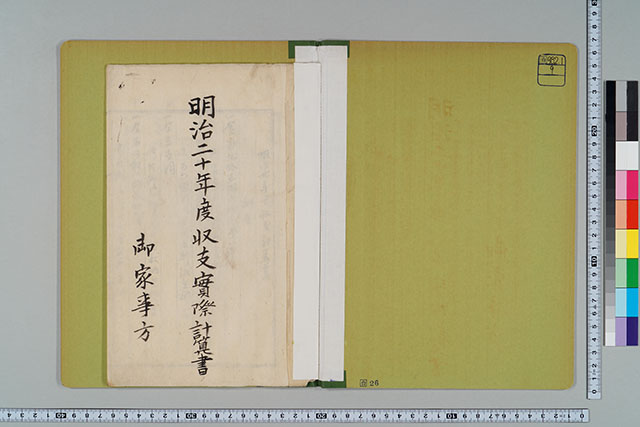 明治二十年度収支實際計算書
御家事方
9
図 26